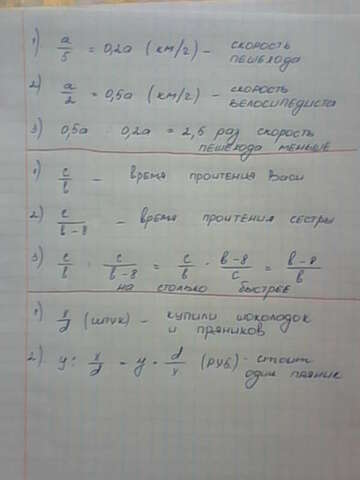 1) a/5 = 0,2a (км/ч) – скорость
пешехода
2) a/2 = 0,5a (км/ч) – скорость
велосипедиста
3) 0,5a : 0,2a = 2,5 раз скорость
пешехода меньше
1) c/b – время прочтения Васи
2) c/b-8 – время прочтения сестры
3) c/b : c/b-8 = c/b · b-8/c = b-8/b
на столько быстрее
1) x/d (штук) – купили шоколадок
и пряников
2) y : x/d = y · d/x (руб.) - стоит
один пряник